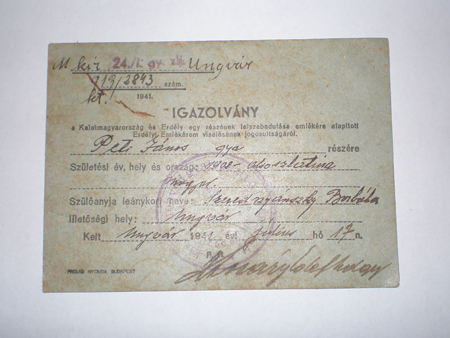 M. kir. 24./I. gy. zlj. Ungvár
119/2843 szám.
kt. 1941.
IGAZOLVÁNY
a Keletmagyarország és Erdély egy részének felszabadulása emlékére alapított
Erdélyi Emlékérem viselésének jogosultságáról.
Péti János gya részére
Születési év, hely és ország: 1908
Szülőanyja leánykori neve: Borbála
Illetőségi hely: Ungvár
Kelt Ungvár 1941 évi június hó 17 n.